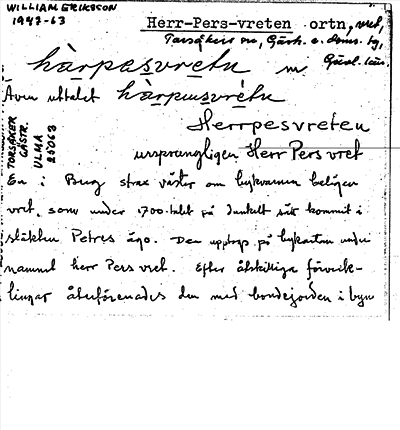 WILLIAM ERIKSSON
1947-63
Herr-Pers-vreten ortn, vret,
Torsåkers sn, Gästr. o. doms. tg,
Gävl. län.
hàrpesvretn m
Även uttalet hàrpusvrétn
TORSÅKER
GÄSTR.
ULMA
25063
Herrpesvreten
ursprungligen Herr Pers vret
En i Berg strax väster om bykvarnen belägen
vret, som under 1700-talet på dunkelt sätt kommit i
släkten Petres ägo. Den upptogs på bykartan under
namnet herr Pers vret. Efter åtskilliga förveck-
lingar återförenades den med bondejorden i byn